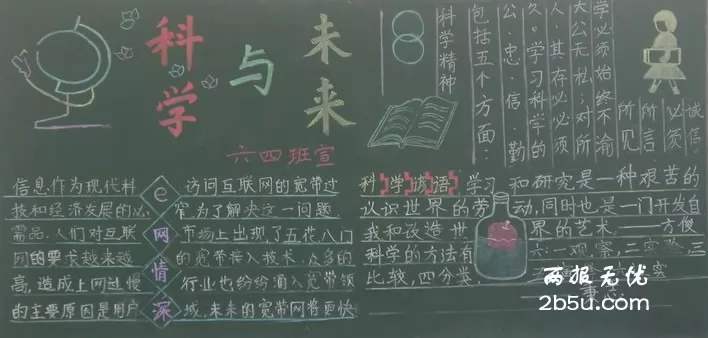 科学
与
未来
六四班宣
科学精神
包括五个方面：
公·忠·信·勤
久。学习科学的
大公无私；对所
学必须始终不渝
所见
所言
必须
诚信。
信息作为现代科
技和经济发展的必
需品.人们对互联
网的要求越来越
高,造成上网过慢
的主要原因是用户
e
网
情
深
访问互联网的宽带过
窄.为了解决这一问题
市场上出现了五花八门
的宽带接入技术.众多的
行业也纷纷涌入宽带领
域,未来的宽带网将更快
科学谈语 学习和研究是一种艰苦的
认识世界的劳动,同时也是一门开发自
我和改造世界的艺术——方俊
科学的方法有六:一观察,二实验,三
比较,四分类,
两报无忧
2b5u.com